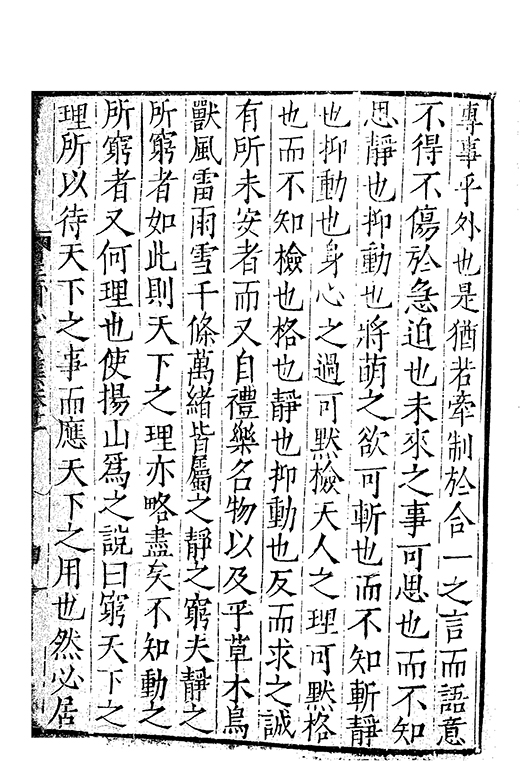 專事乎外也是猶若牽制於合一之言而語意
不得不傷於急迫也未來之事可思也而不知
思靜也抑動也將萌之欲可斬也而不知斬靜
也抑動也身心之過可默檢天人之理可默格
也而不知檢也格也靜也抑動也反而求之誠
有所未安者而又自禮樂名物以及乎草木鳥
獸風雷雨雪千條萬緒皆屬之靜之窮夫靜之
所窮者如此則天下之理亦略盡矣不知動之
所窮者又何理也使揚山爲之說曰窮天下之
理所以待天下之事而應天下之用也然必居